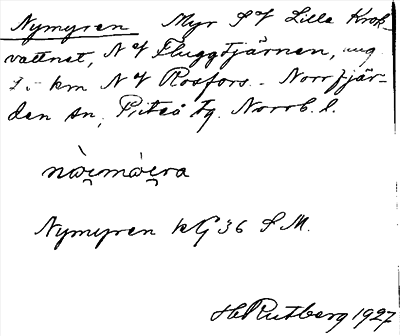 Nymyren Myr S of Lilla Krok-
vattnet, N of Fluggtjärnen, ung.
km N of Rosfors. - Norrfjär-
den sn, Piteå tg. Norrb. l.
Nymyren kG 36 S M.
H Rutberg 1927